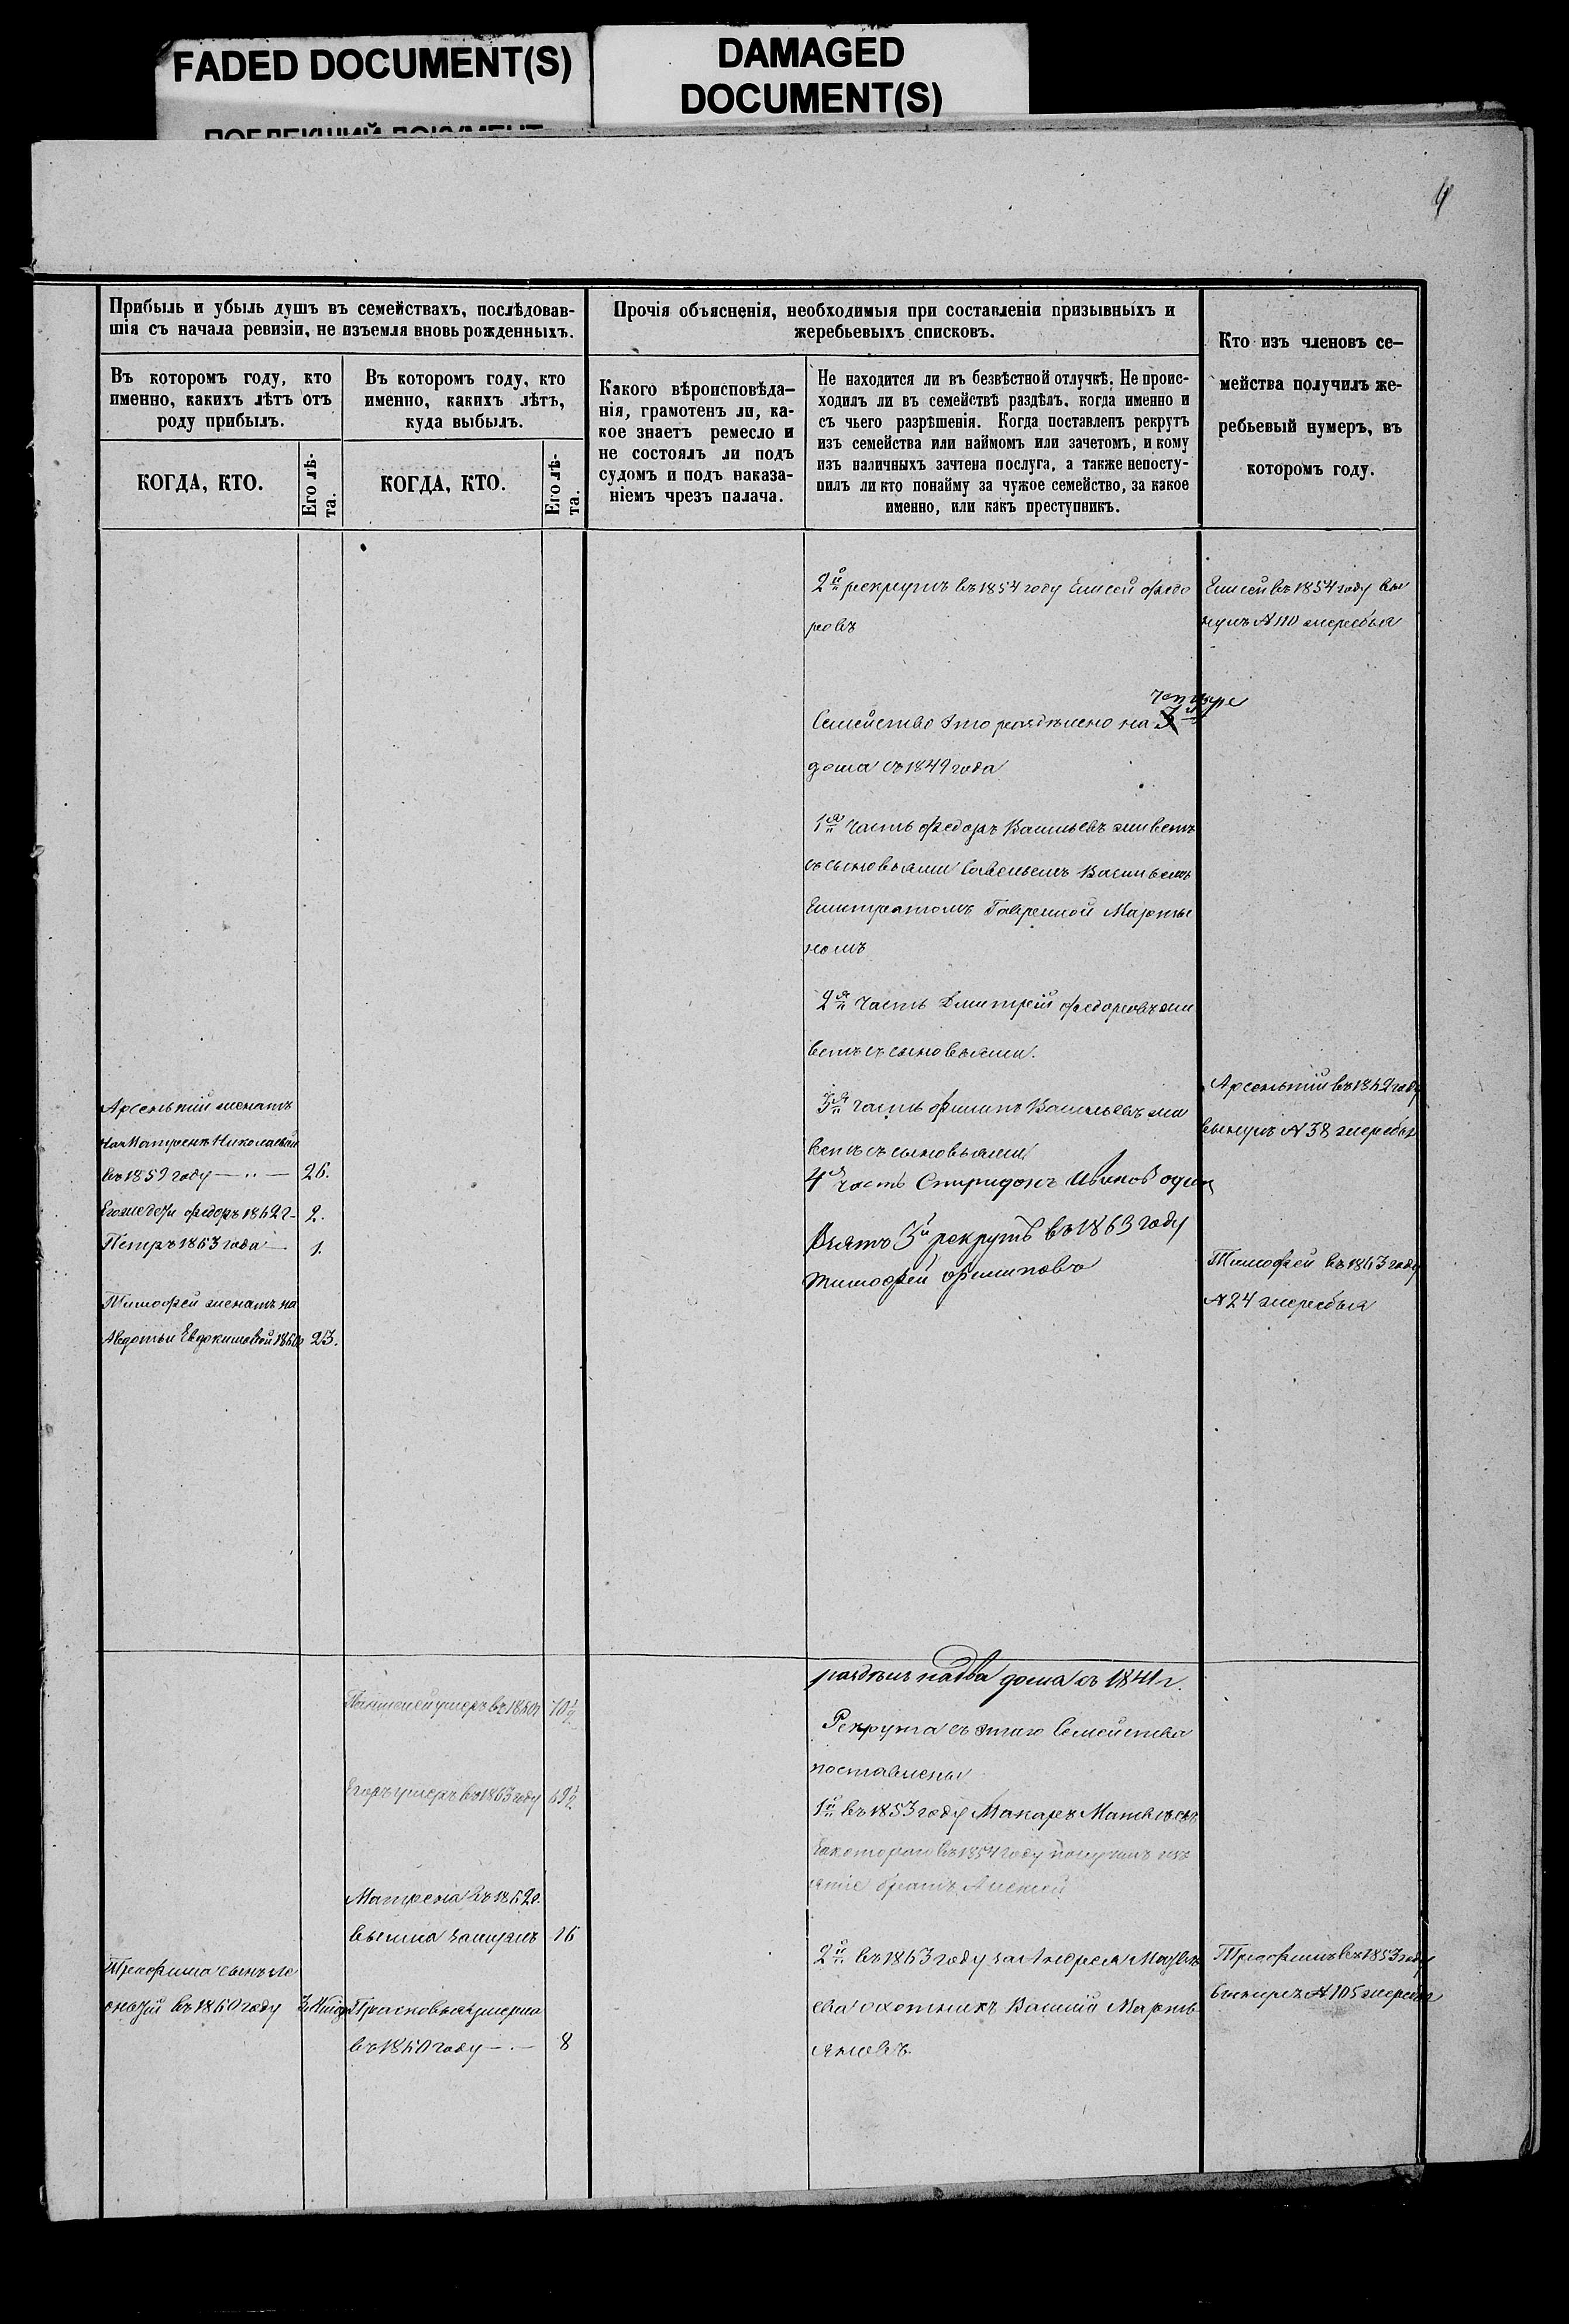 FADED DOCUMENT(S)
DAMAGED
DOCUMENT(S)
4
Прибыль и убыль душъ въ семействахъ, послѣдовав-
шія съ начала ревизіи, не изъемля вновь рожденныхъ.
Въ которомъ году, кто
именно, какихъ лѣтъ отъ
роду прибылъ.
КОГДА, КТО.
Его лѣ-
та.
Въ которомъ году, кто
именно, какихъ лѣтъ,
куда выбылъ.
КОГДА, КТО.
Его лѣ-
та.
Прочія объясненія, необходимыя при составленіи призывныхъ и
жеребьевыхъ списковъ.
Какого вѣроисповѣда-
нія, грамотенъ ли, ка-
кое знаетъ ремесло и
не состоялъ ли подъ
судомъ и подъ наказа-
ніемъ чрезъ палача.
Не находится ли въ безвѣстной отлучкѣ. Не проис-
ходилъ ли въ семействѣ раздѣлъ, когда именно и
съ чьего разрѣшенія. Когда поставленъ рекрутъ
изъ семейства или наймомъ или зачетомъ, и кому
изъ наличныхъ зачтена послуга, а также непосту-
пилъ ли кто понайму за чужое семейство, за какое
именно, или какъ преступникъ.
Кто изъ членовъ се-
мейства получилъ же-
ребьевый нумеръ, въ
которомъ году.
Арсентий женатъ
на Матренѣ Николаевой
въ 1859 году 26.
Егоже дети Федоръ 1862 г. 2.
Петръ 1863 года 1.
Тимофей женатъ на
Авдотьи Евдокимовой 23.
умеръ въ 1860 г 10½
Егоръ умеръ въ 1863 году
Матрена въ 1862 г.
вышла замужъ 16
Прасковья умерла
въ 1860 году 8
Трофима сынъ
въ 1860 году
2й рекрутъ въ 1854 году Елисей Федо
ровъ
четыре
Семейство это разделено на 3
дома съ 1849 года
1я часть Федоръ Васильевъ живетъ
съ сыновьями Савельемъ Васильемъ
Гаврилой Марты
номъ
2я часть Дмитрей Федоровъ жи
ветъ съ сыновьями.
3я часть Филипъ Васильевъ жи
ветъ съ сыновьями
4я часть Спиридонъ Ивановъ один
Взятъ 3й рекрутъ въ 1863 году
Тимофей Филиповъ
разделъ на два дома съ 1841 г.
Рекрута съ этаго Семейства
поставлены
1й въ 1853 году Макаръ
за котораго въ 1854 году получилъ
братъ Алексей
2й въ 1863 году за Андрея
охотникъ Василий Марть
яновъ.
Елисей въ 1854 году вы
нулъ № 110 жеребья
Арсентий въ 1862 году
вынулъ № 38 жеребья
Тимофей въ 1863 году
№ 24 жеребья
Трофимъ въ 1853 году
№ 105 жеребья